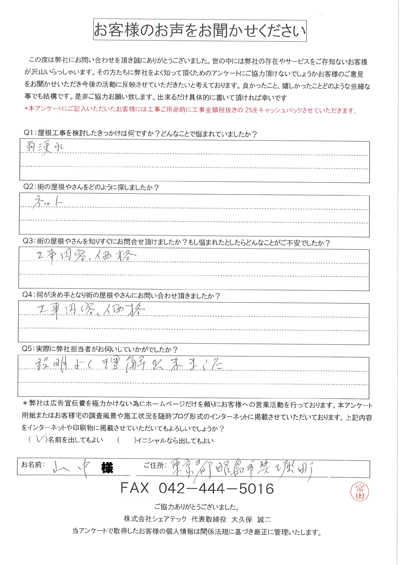 お客様のお声をお聞かせください
この度は弊社にお問い合わせを頂き誠にありがとうございました。世の中には弊社の存在やサービスをご存知ないお客様
が沢山いらっしゃいます。その方たちに弊社をよく知って頂くためのアンケートにご協力頂けないでしょうかお客様のご意見
をお聞かせいただき今後の活動に反映させていただきたいと考えております。良かったこと、嬉しかったことどのような些細な
事でも結構です。是非ご協力お願い致します。出来るだけ具体的に書いて頂ければ幸いです
*本アンケートにご記入いただいたお客様には工事ご用命時に工事金額税抜きの2%をキャッシュバックさせていただきます。
Q1:屋根工事を検討したきっかけは何ですか?どんなことで悩まれていましたか?
雨漏れ
Q2:街の屋根やさんをどのように探しましたか?
ネット
Q3:街の屋根やさんを知りすぐにお問合せ頂けましたか?もし悩まれたとしたらどんなことがご不安でしたか?
工事内容、価格
Q4:何が決め手となり街の屋根やさんにお問い合わせ頂きましたか?
工事内容、価格
Q5:実際に弊社担当者がお伺いしていかがでしたか?
説明よく理解出来ました
*弊社は広告宣伝費を極力かけない為にホームページだけを頼りにお客様への営業活動を行っております。本アンケート
用紙またはお客様宅の調査風景や施工状況を随時ブログ形式のインターネットに掲載させていただいております。上記内容
をインターネットや印刷物に掲載させていただいてもよろしいでしょうか?
(レ)名前を出してもよい ( )イニシャルなら出してもよい
お名前: 山中 様 ご住所: 東京都昭島市美堀町
FAX 042-444-5016
ご協力ありがとうございました。
株式会社シェアテック 代表取締役 大久保 誠二
当アンケートで取得したお客様の個人情報は関係法規に基づき厳正に管理いたします。